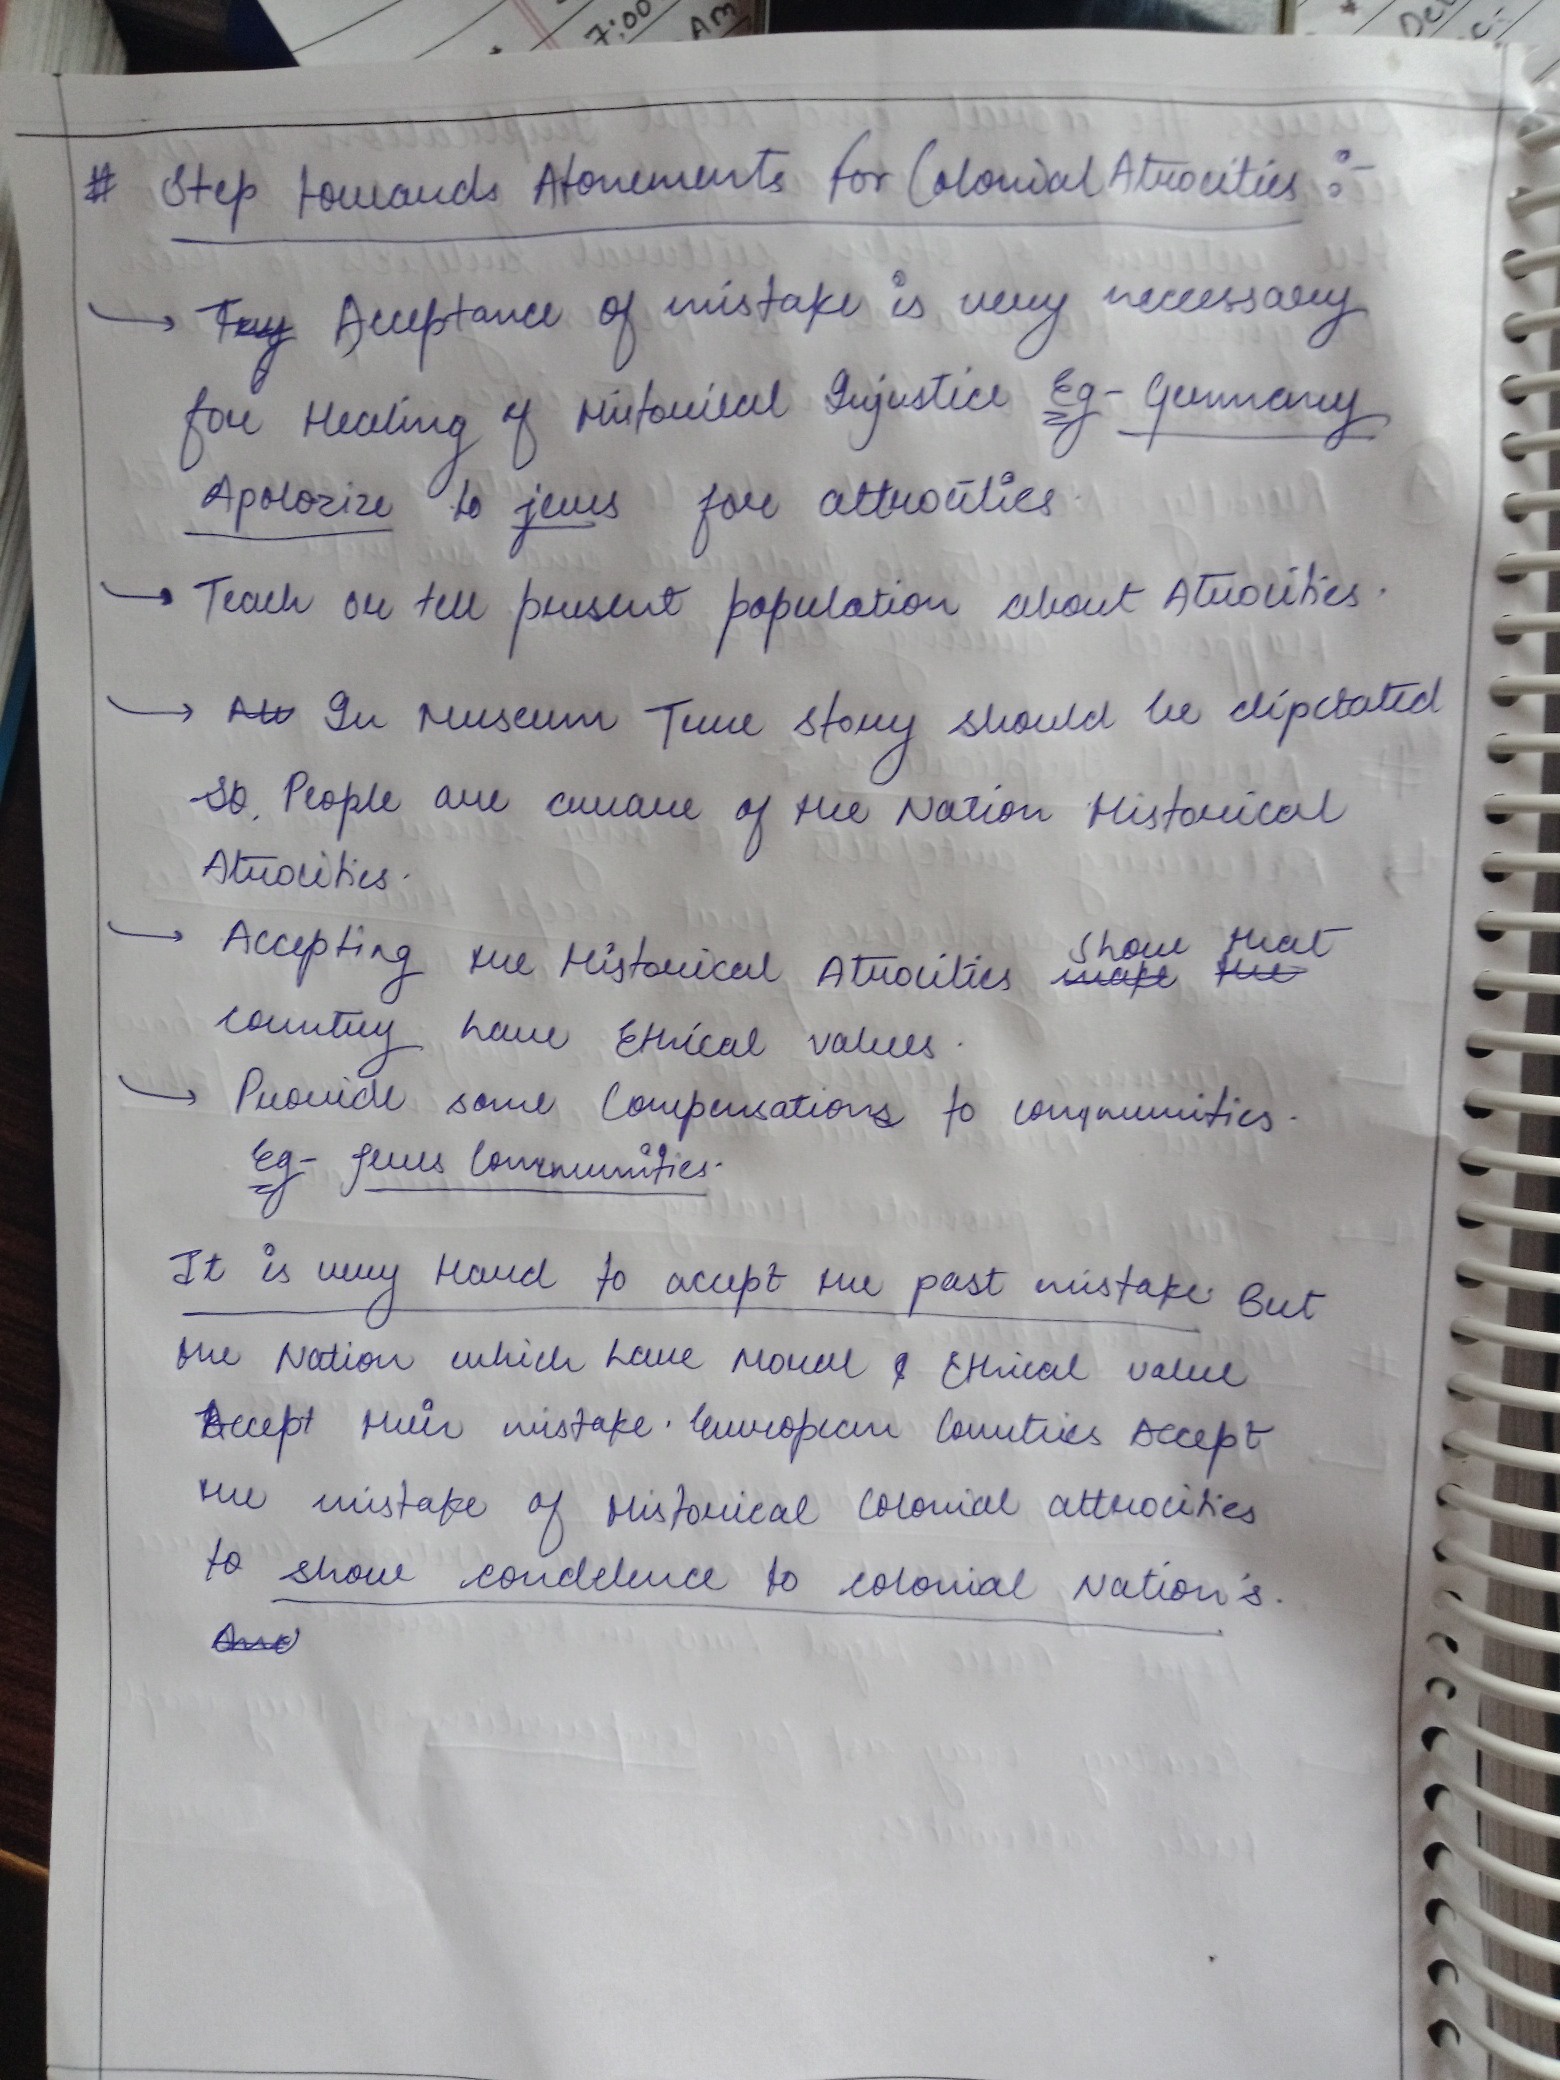 7:00 AM
# Step towards Atonements for Colonial Atrocities :-
→ Try Acceptance of mistake is very neccessary
for Healing of Historical Injustice Eg- Germany
Apolozize to jews for attrocities.
→ Teach or tell present population about Atrocities.
→ In Museum True story should be dipctated
so, People are aware of the Nation Historical
Atrocities.
→ Accepting the Historical Atrocities make the show that
country have Ethical values.
→ Provide some Compensations to communities.
Eg- Jews Communities.
It is very Hard to accept the past mistake. But
the Nation which have Moral & Ethical value
Accept their mistake. European Countries Accept
the mistake of Historical Colonial attrocities
to show condelence to colonial Nation's.